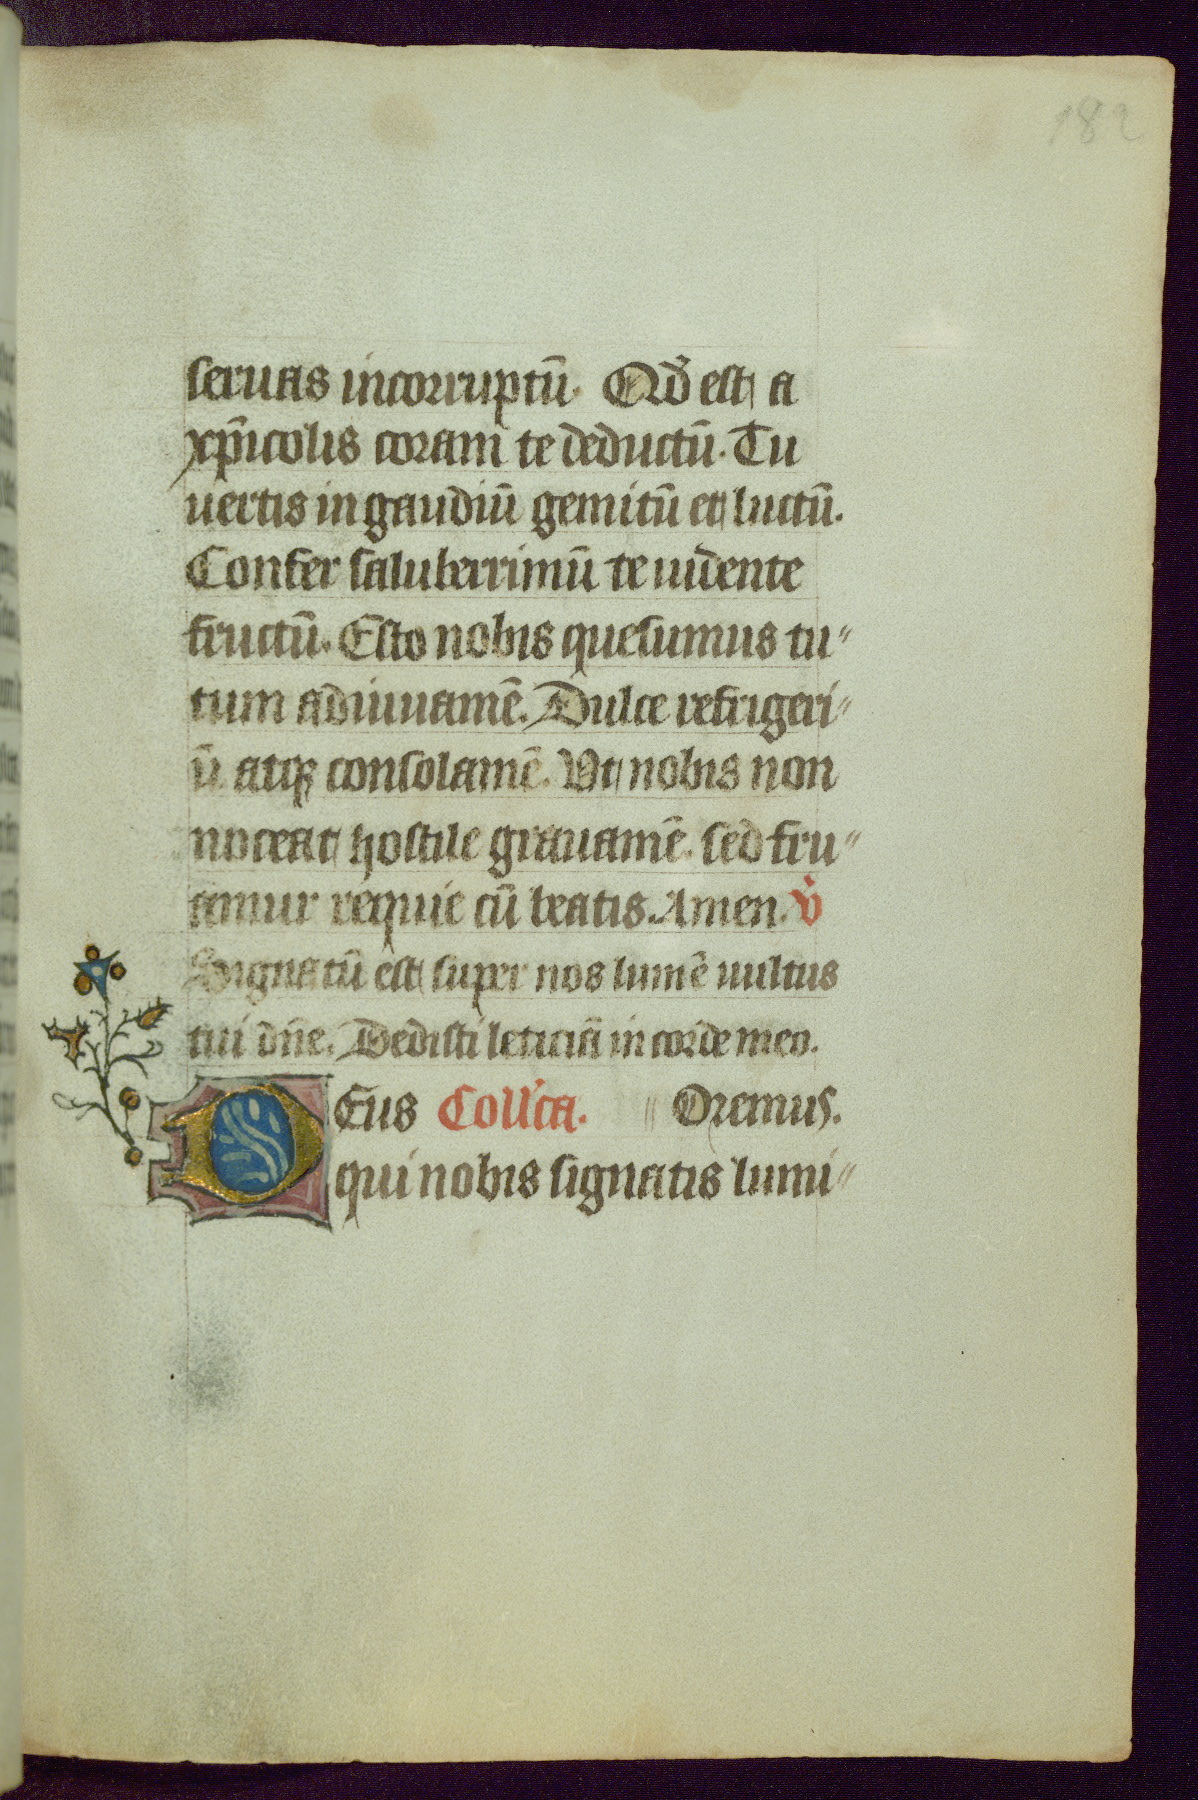 182
seruas incorruptū. Qd̕ est a
xp̄icolis coram te deductū. Tu
uertis in gaudiū gemitū et luctū.
Confer saluberrimū te uidente
fructū. Esto nobis quesumus tu〃
tum adiuuamē. Dulce refrigeri〃
ū. atqꝫ consolamē. Vt nobis non
noceat hostile grauamē. sed fru〃
amur requie cū beatis. Amen. v̕
Signatū est super nos lumē uultus
tui dn̄e. Dedisti leticiā in corde meo.
DEus Coll'ca. 〃 Oremus.
qui nobis signatis lumi〃